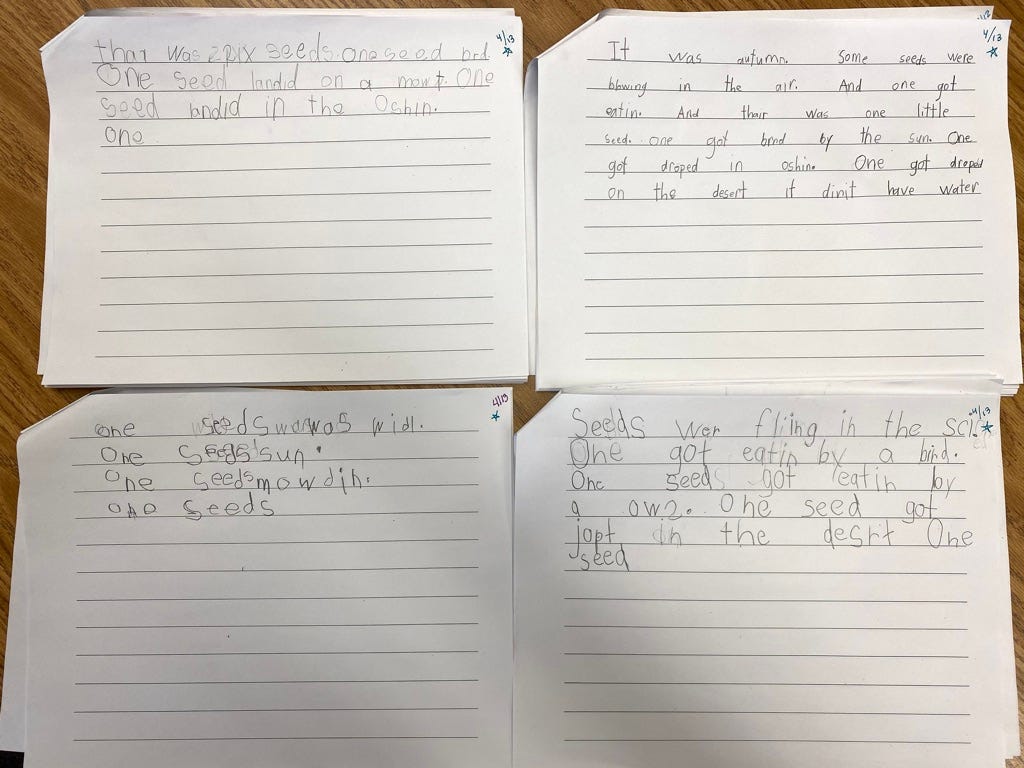 4/13
thar was 2 seeds. one seed brd.
One seed landid on a mowt. One
seed landid in the Oshin.
One
4/13
It was autumn. Some seeds were
blowing in the air. And one got
eatin. And thair was one little
seed. one got brnd by the sun. One
got droped in oshin. One got droped
on the desert it dinit have water
4/13
one seeds was widl.
One sun.
One seeds mowdin.
one seeds
4/13
Seeds wer fliing in the sci.
One got eatin by a brid.
One seeds got eatin by
a ow2. One seed got
jopt in the desrt One
seed